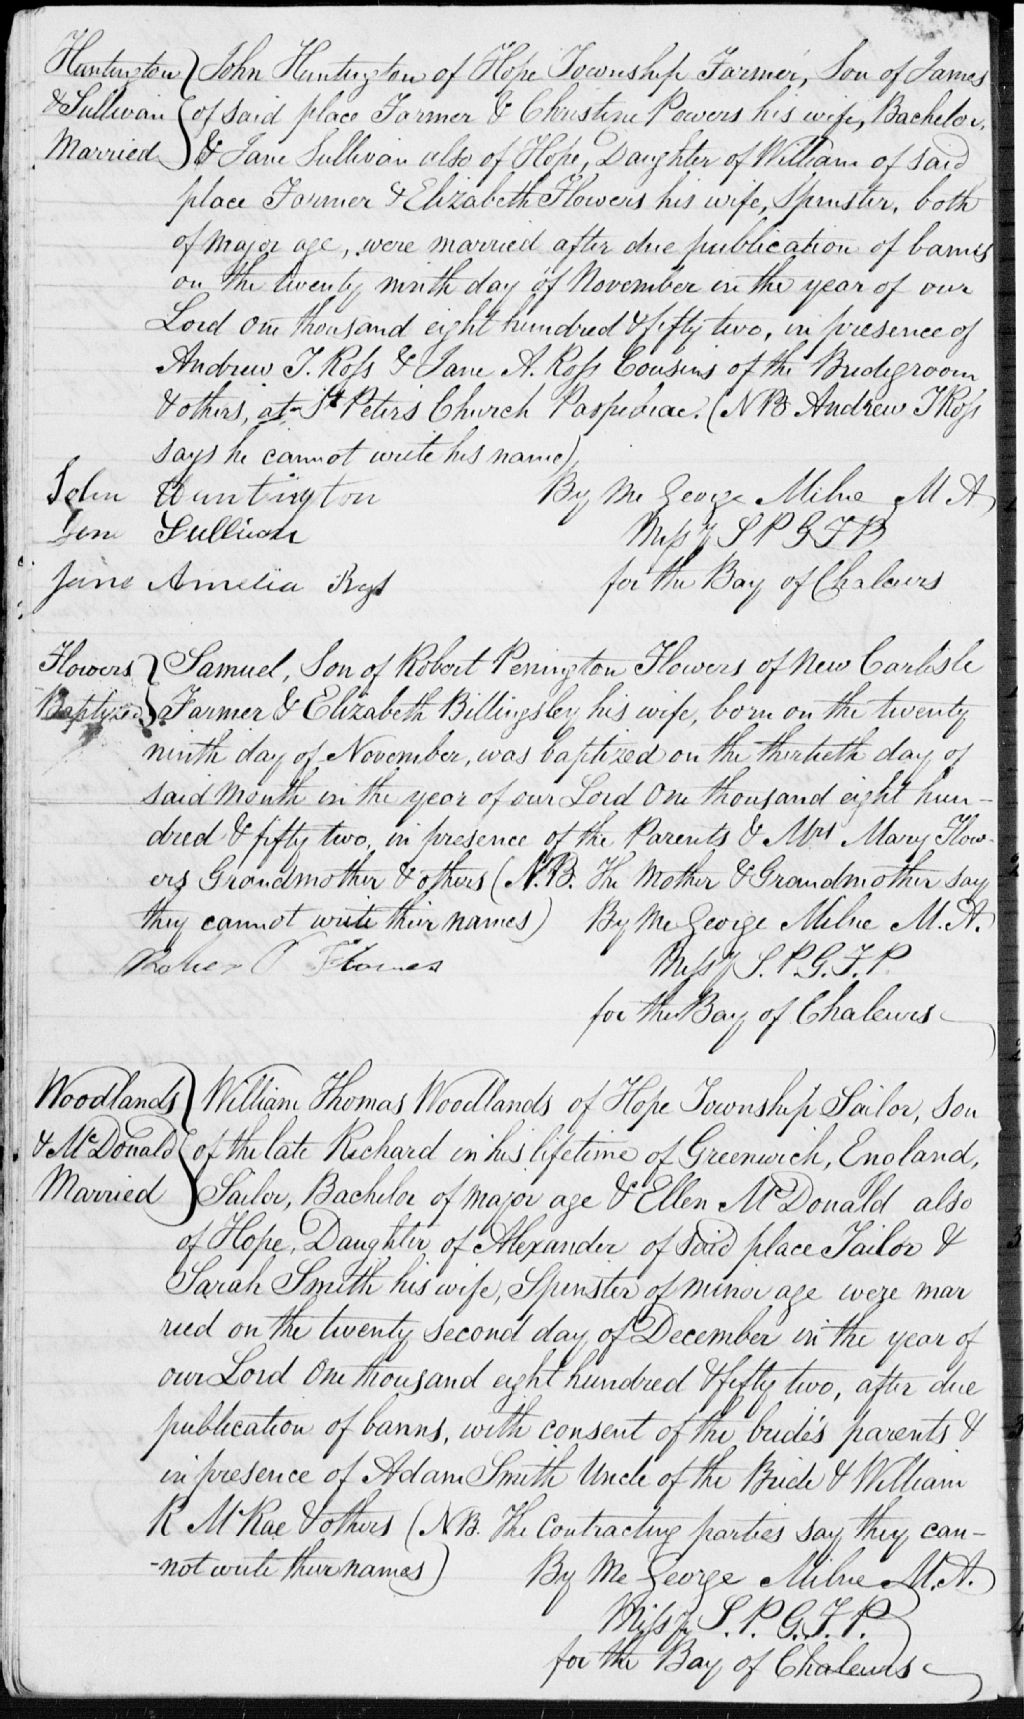 Huntington } John Huntington of Hope Township Farmer, Son of James
& Sullivan { of said place Farmer & Christine Powers his wife, Bachelor,
Married } & Jane Sullivan also of Hope, Daughter of William of said
place Farmer & Elizabeth Flowers his wife, Spinster, both
of major age, were married after due publication of banns
on the twenty ninth day of November in the year of our
Lord One thousand eight hundred & fifty two, in presence of
Andrew J. Ross & Jane A. Ross Cousins of the Bridegroom
& others, at St Peters Church Paspebiac. (NB Andrew J Ross
says he cannot write his name)
John Huntington By Me George Milne M A
Jane Sullivan Missy S P G F P
Jane Amelia Ross for the Bay of Chaleurs
Flowers } Samuel, Son of Robert Penington Flowers of New Carlisle
Baptized } Farmer & Elizabeth Billingsley his wife, born on the twenty
ninth day of November, was baptized on the thirtieth day of
said Month in the year of our Lord One thousand eight hun-
dred & fifty two, in presence of the Parents & Mrs Mary Flow-
ers Grandmother & others (N.B. The Mother & Grandmother say
they cannot write their names) By Me George Milne M.A.
Robert P Flowers Missy S. P. G. F. P.
for the Bay of Chaleurs
Woodlands } William Thomas Woodlands of Hope Township Sailor, son
& McDonald { of the late Richard in his lifetime of Greenwich, England,
Married } Sailor, Bachelor of major age & Ellen McDonald also
of Hope, Daughter of Alexander of said place Tailor &
Sarah Smith his wife, Spinster of minor age were mar
ried on the twenty second day of December in the year of
our Lord One thousand eight hundred & fifty two, after due
publication of banns, with consent of the bride's parents &
in presence of Adam Smith Uncle of the Bride & William
R McRae & others (NB. The Contracting parties say they can-
-not write their names) By Me George Milne M.A.
Missy S. P. G. F. P.
for the Bay of Chaleurs